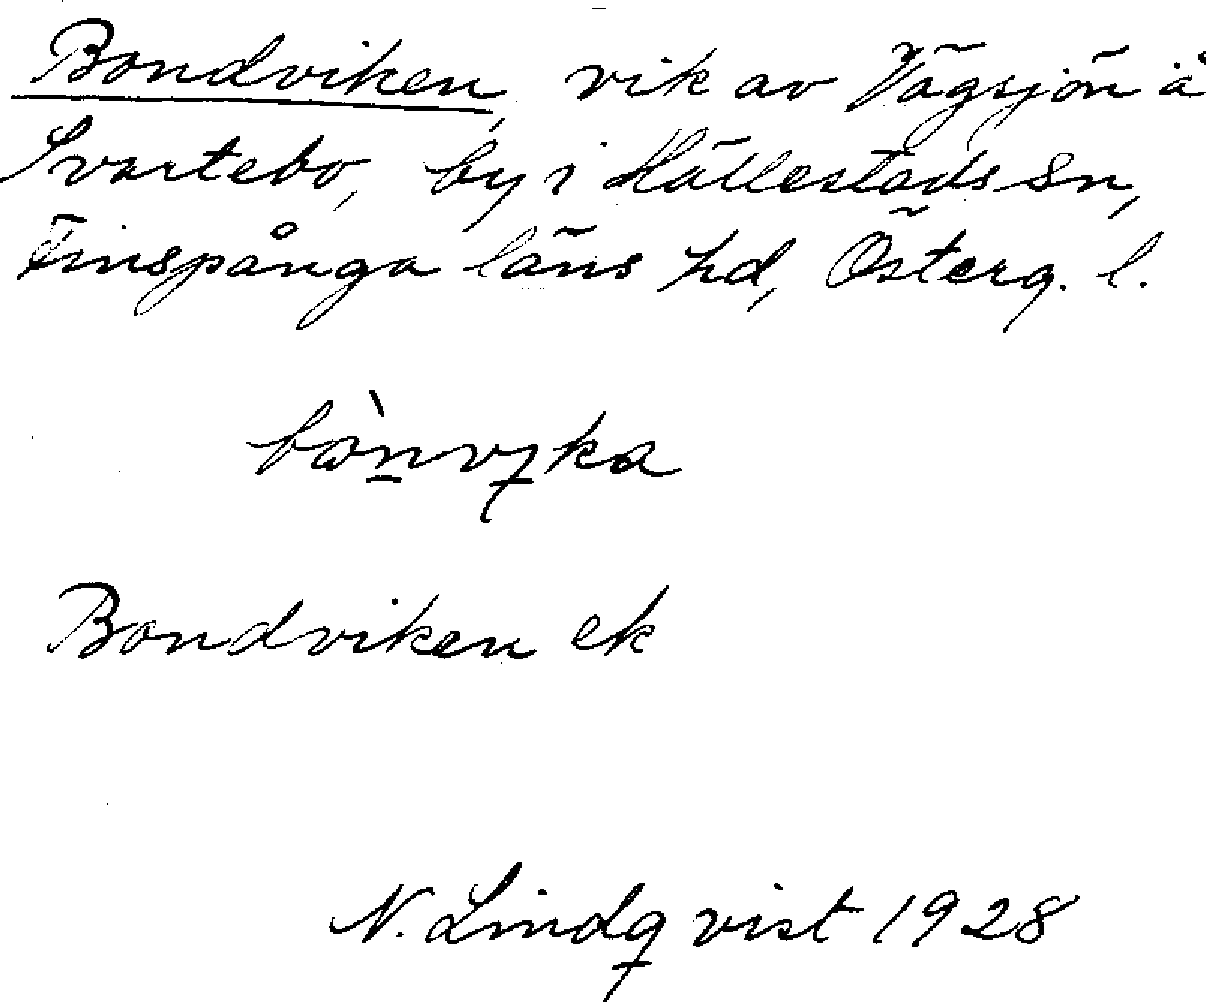 Bondviken, vik av Vägsjön å
Svartebo, by i Hällestads sn,
Finspånga läns hd, Österg. l.
Bondviken ek
N. Lindqvist 1928